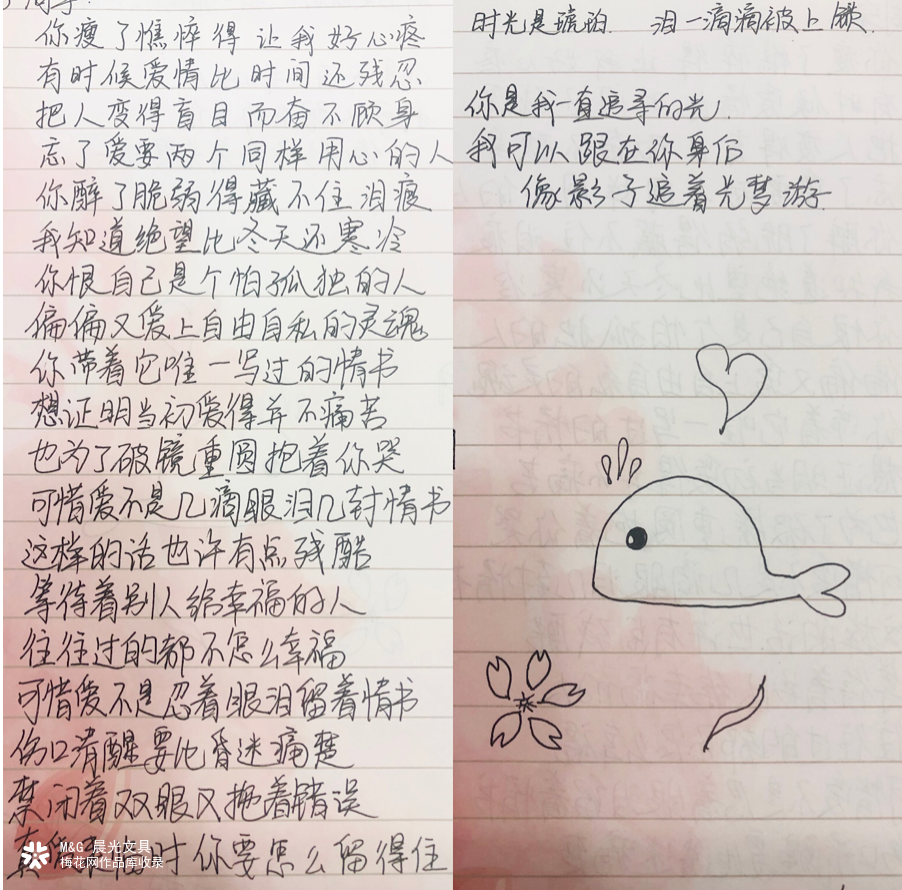 你瘦了憔悴得让我好心疼
有时候爱情比时间还残忍
把人变得盲目而奋不顾身
忘了爱要两个同样用心的人
你醉了脆弱得藏不住泪痕
我知道绝望比冬天还寒冷
你恨自己是个怕孤独的人
偏偏又爱上自由自私的灵魂
你带着它唯一写过的情书
想证明当初爱得并不痛苦
也为了破镜重圆抱着你哭
可惜爱不是几滴眼泪几封情书
这样的话也许有点残酷
等待着别人给幸福的人
往往过的都不怎么幸福
可惜爱不是忍着眼泪留着情书
伤口清醒要比昏迷痛楚
禁闭着双眼又拖着错误
真 时你要怎么留得住
M&G 晨光文具
梅花网作品库收录
时光是琥珀 泪一滴滴被上锁
你是我一直追寻的光
我可以跟在你身后
像影子追着光梦游